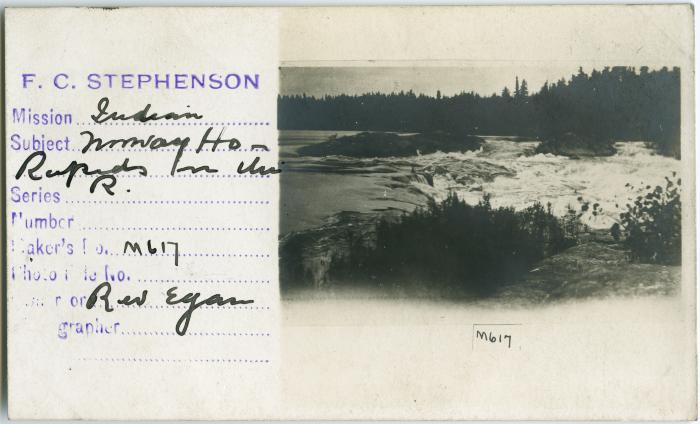 F. C. STEPHENSON
Mission Indian
Subject Norway Ho-
Rapids in the
Series R.
Number
Maker's No. M617
Photo File No.
or Rev Egan
grapher
M617